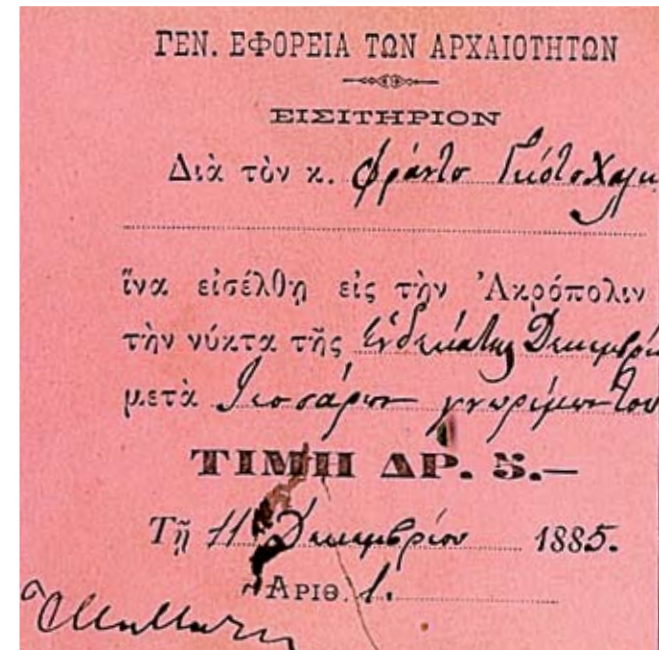 ΓΕΝ. ΕΦΟΡΕΙΑ ΤΩΝ ΑΡΧΑΙΟΤΗΤΩΝ
ΕΙΣΙΤΗΡΙΟΝ
Διὰ τὸν κ. Φράντσ
ἵνα εἰσέλθῃ εἰς τὴν Ἀκρόπολιν
τὴν νύκτα τῆς ἑνδεκάτης Δεκεμβρίο
μετὰ τεσσάρων γνωρίμων του
ΤΙΜΗ ΔΡ. 5.—
Τῇ 11 Δεκεμβρίου 1885.
ΑΡΙΘ. 1.